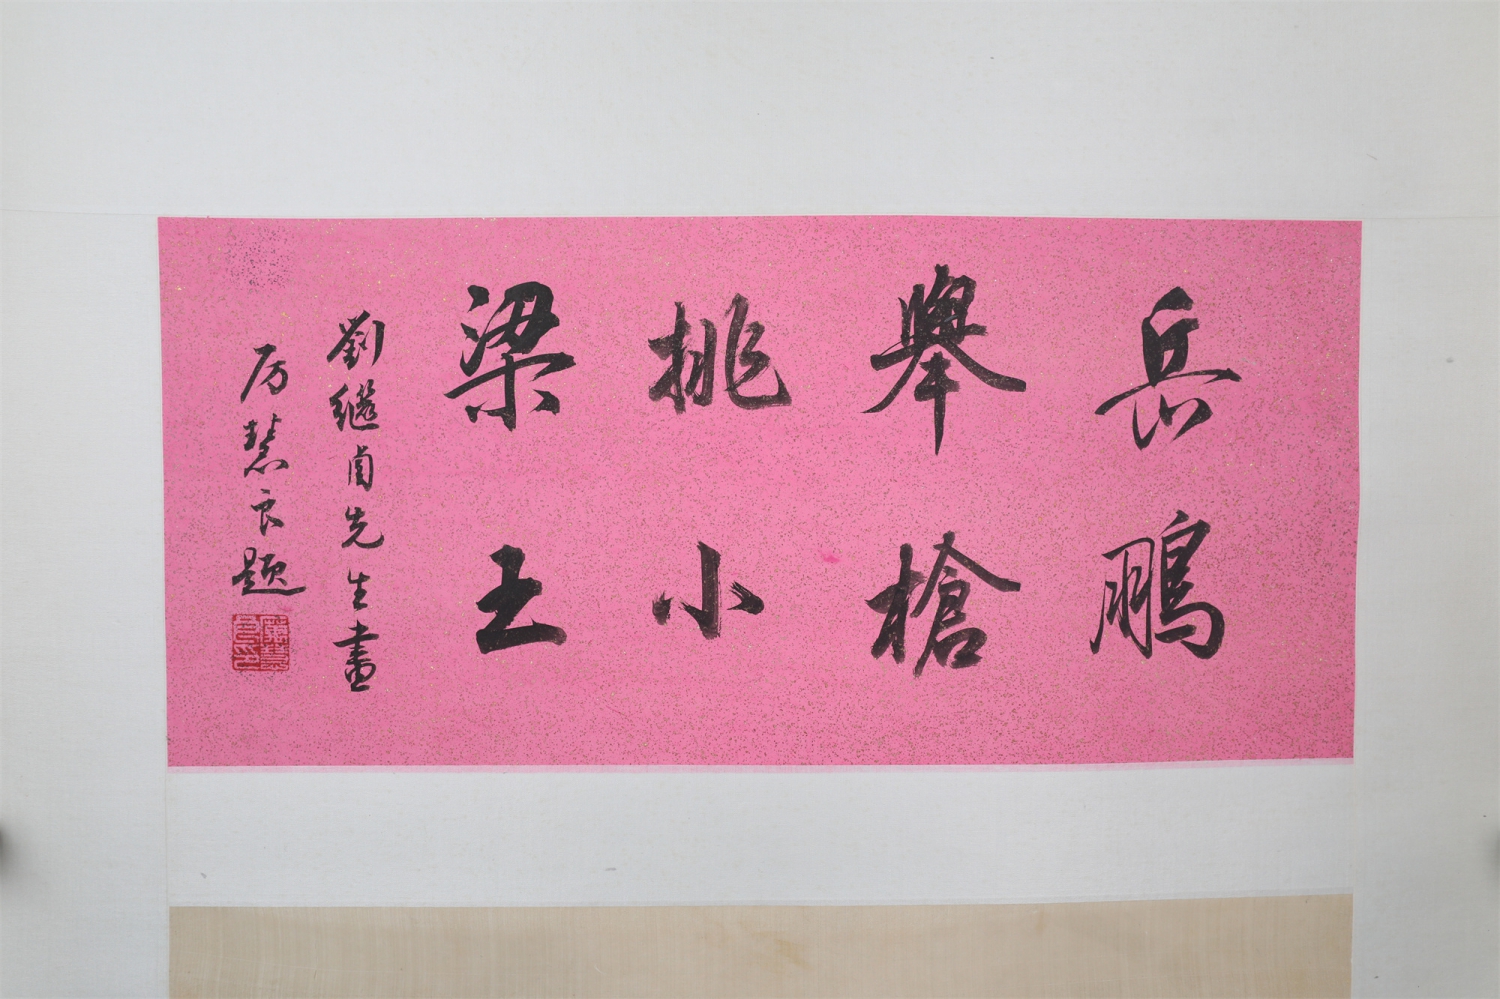 岳鵬
舉槍
挑小
梁王
劉繼卣先生畫
厉慧良题
厲慧良印